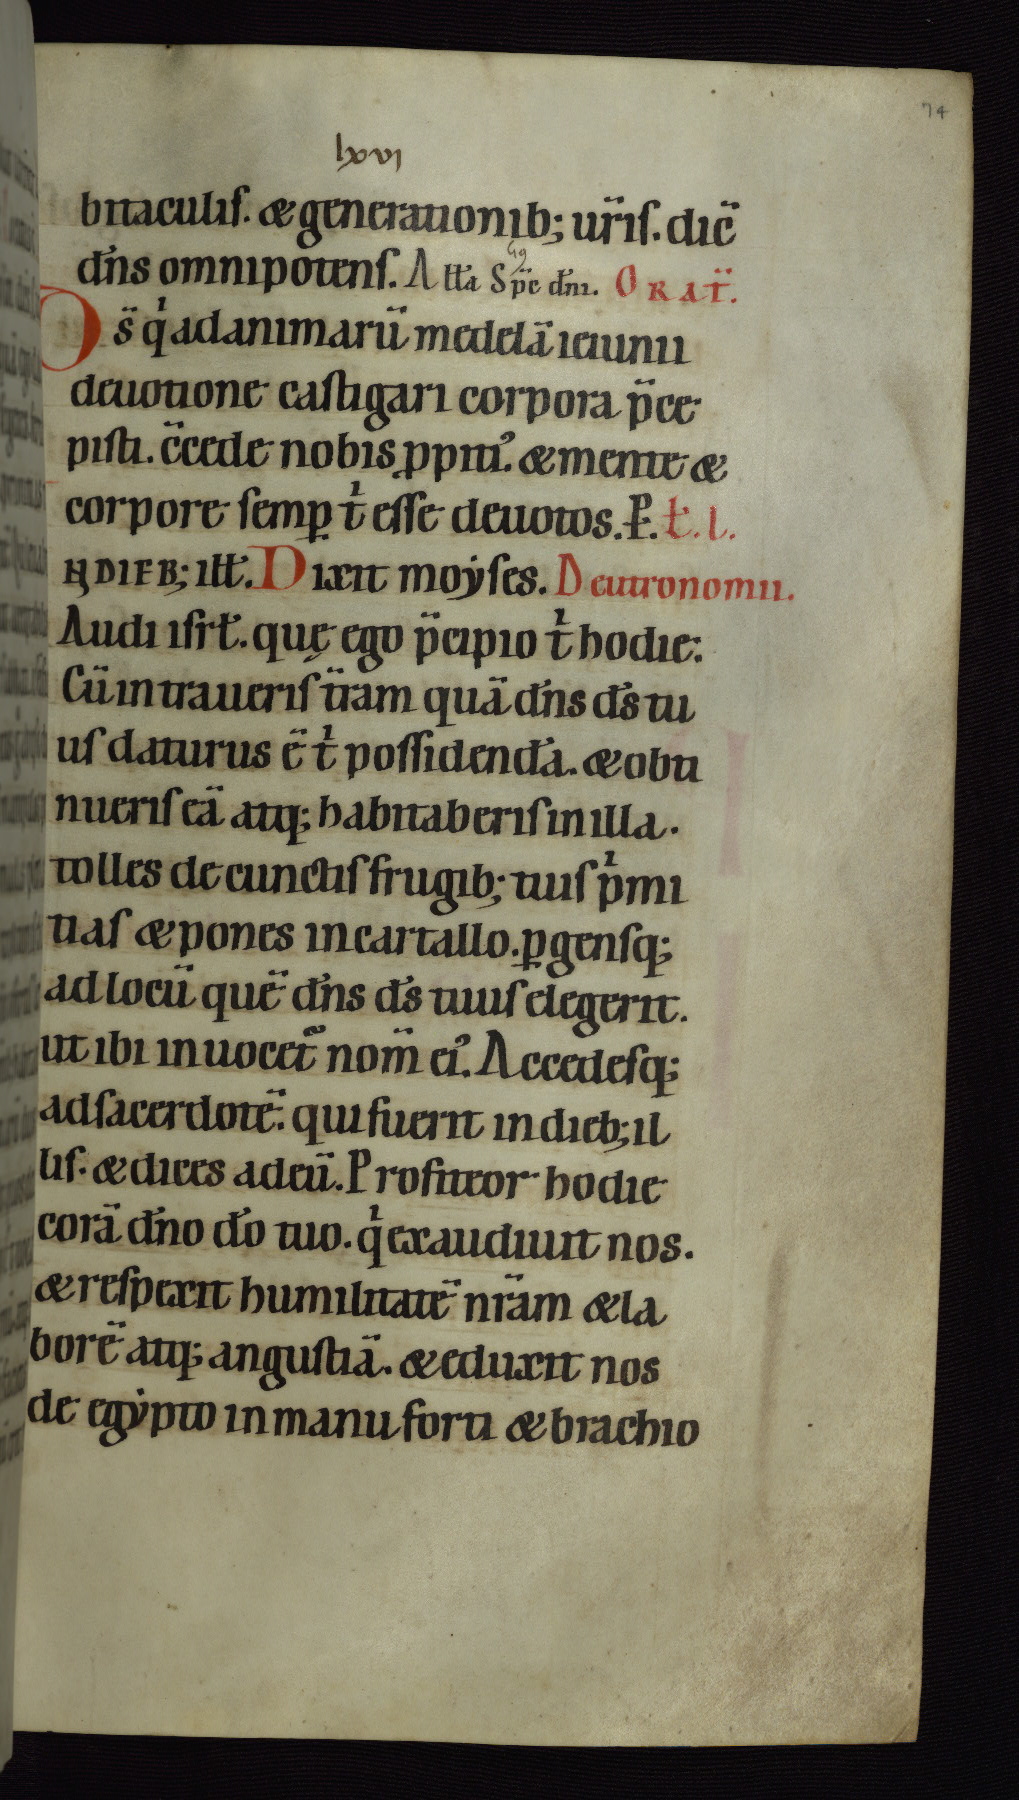 74
lxvi
bitaculis. & generationib; ur̄is. dic̄
dn̄s omnipotens. All̄a Sp̄c dn̄i. Orat̄.
Ds̄ qͥ ad animarū medelā ieiunii
deuotione castigari corpora p̄ce
pisti. c̄cede nobis ꝓpitiꝰ. & mente &
corpore semp̱ tͥ esse deuotos. P. ł. l.
IN DIEB; ill̄. Dixit moẏses. Deutronomii.
Audi isrł. quę ego p̄cipio tͥ hodie:
Cū intraueris t̄ram quā dn̄s ds̄ tu
us daturus ē tͥ possidendā. & obti
nueris eā atq; habitaberis in illa.
tolles de cunctis frugib; tuis pͥmi
tias & pones in cartallo. ꝑgensq;
ad locū quē dn̄s ds̄ tuus elegerit.
ut ibi inuocet᷑ nom̄ eiꝰ. Accedesq;
ad sacerdotē. qui fuerit in dieb; il
lis. & dices ad eū. Profiteor hodie
corā dn̄o dō tuo. qͥ exaudiuit nos.
& respexit humilitatē nr̄am & la
borē atq; angustiā. & eduxit nos
de egẏpto in manu forti & brachio